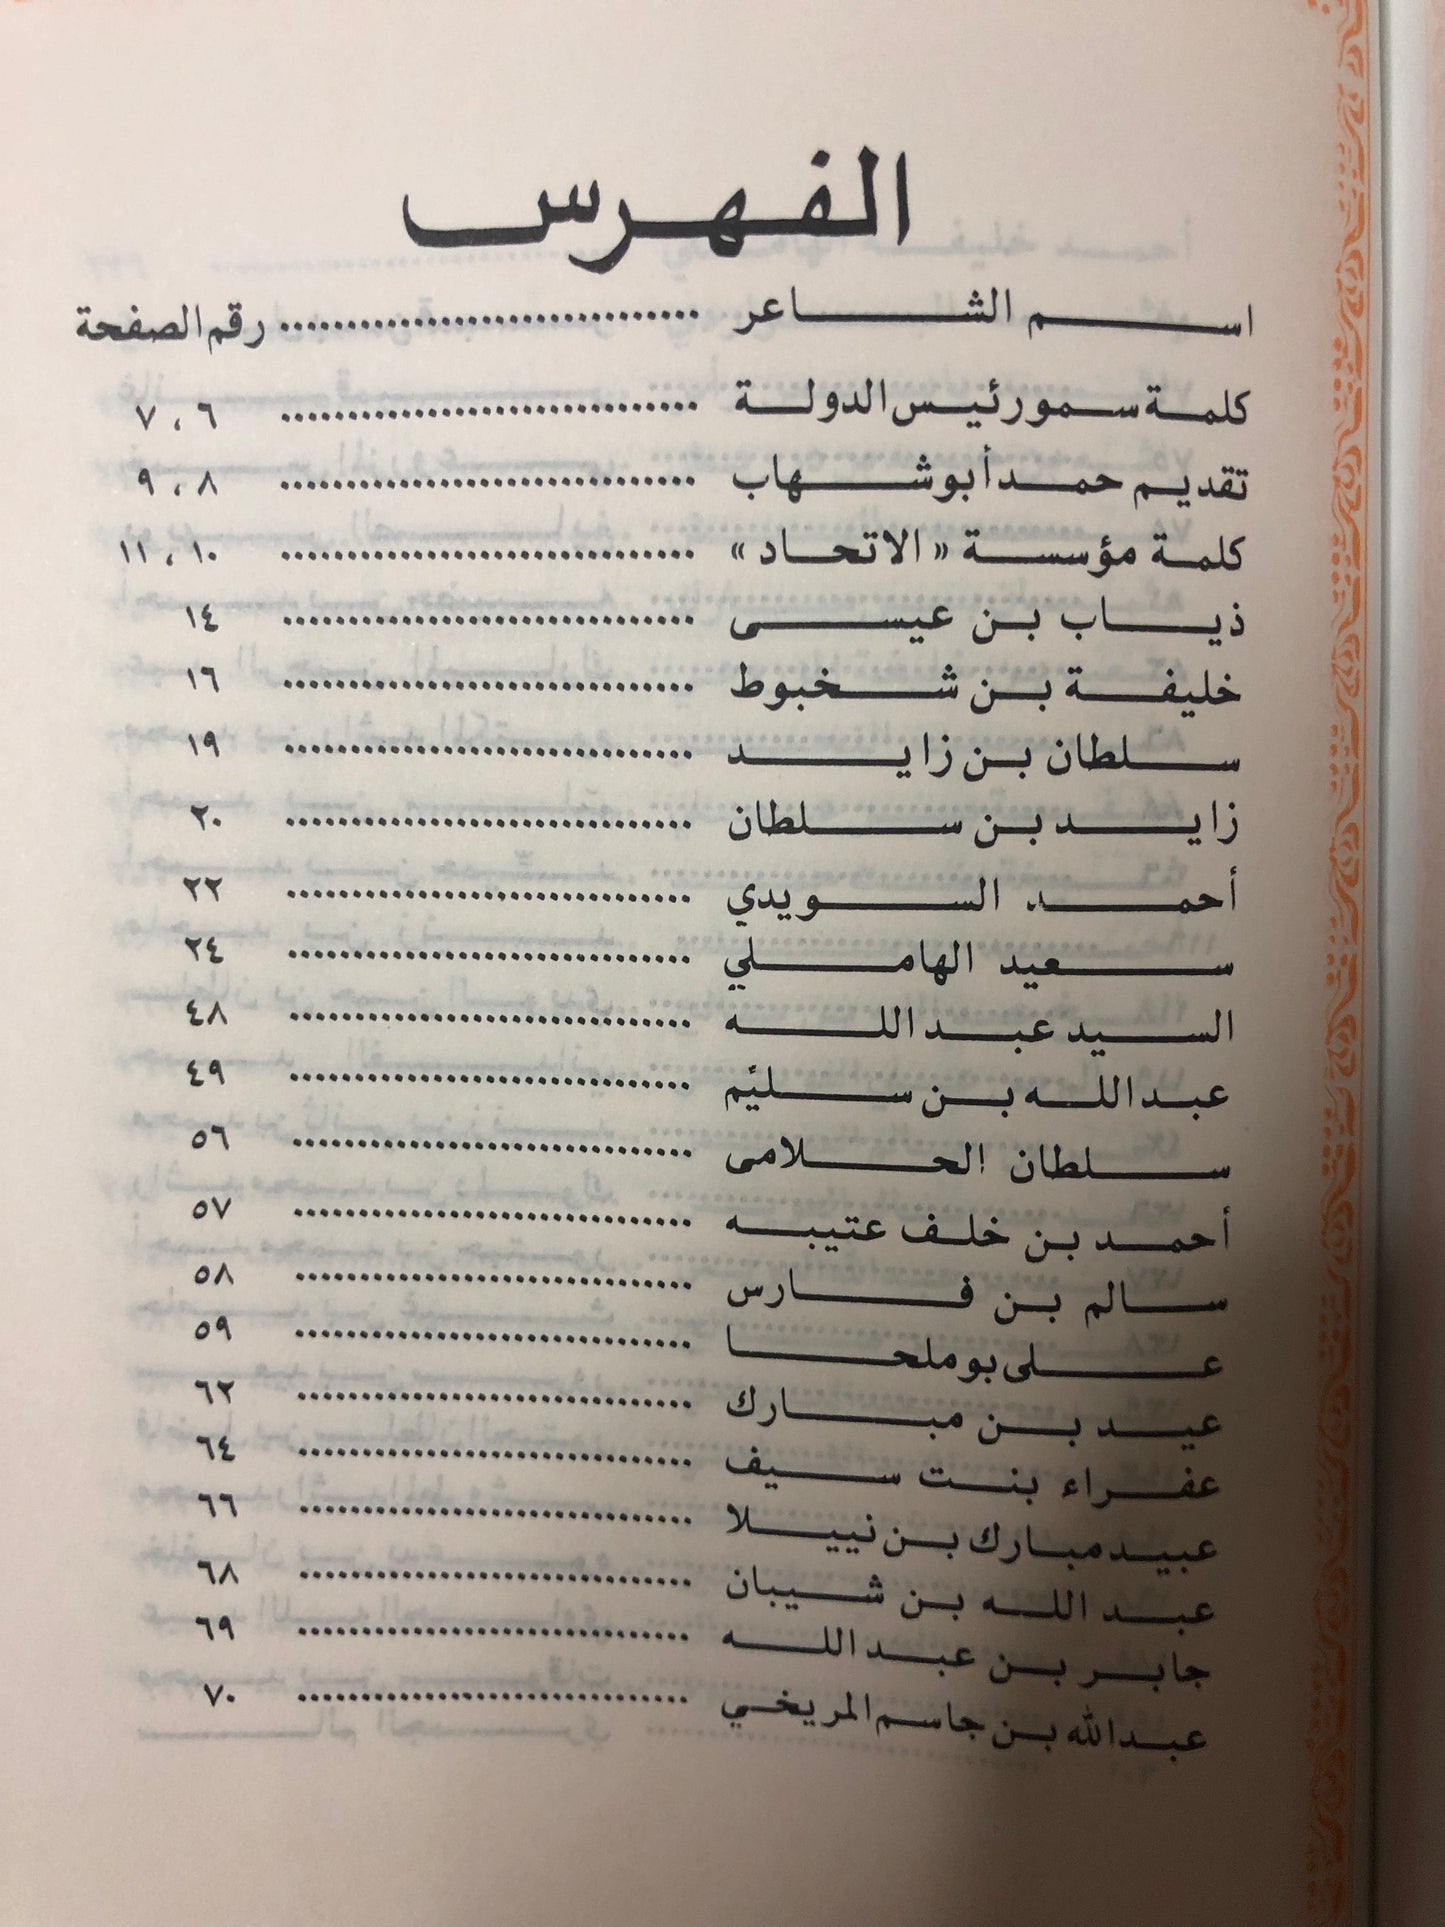 الفهرس
اسم الشاعر ............................... رقم الصفحة
كلمة سمو رئيس الدولة ............................... ٦ ، ٧
تقديم حمد أبو شهاب ............................... ٨ ، ٩
كلمة مؤسسة « الاتحاد » ............................... ١٠ ، ١١
ذياب بن عيسى ............................... ١٤
خليفة بن شخبوط ............................... ١٦
سلطان بن زايد ............................... ١٩
زايد بن سلطان ............................... ٢٠
أحمد السويدي ............................... ٢٢
سعيد الهاملي ............................... ٢٤
السيد عبد الله ............................... ٤٨
عبد الله بن سليّم ............................... ٤٩
سلطان الحلامى ............................... ٥٦
أحمد بن خلف عتيبه ............................... ٥٧
سالم بن فارس ............................... ٥٨
على بو ملحا ............................... ٥٩
عيد بن مبارك ............................... ٦٢
عفراء بنت سيف ............................... ٦٤
عبيد مبارك بن نييلا ............................... ٦٦
عبد الله بن شيبان ............................... ٦٨
جابر بن عبد الله ............................... ٦٩
عبد الله بن جاسم المريخي ............................... ٧٠